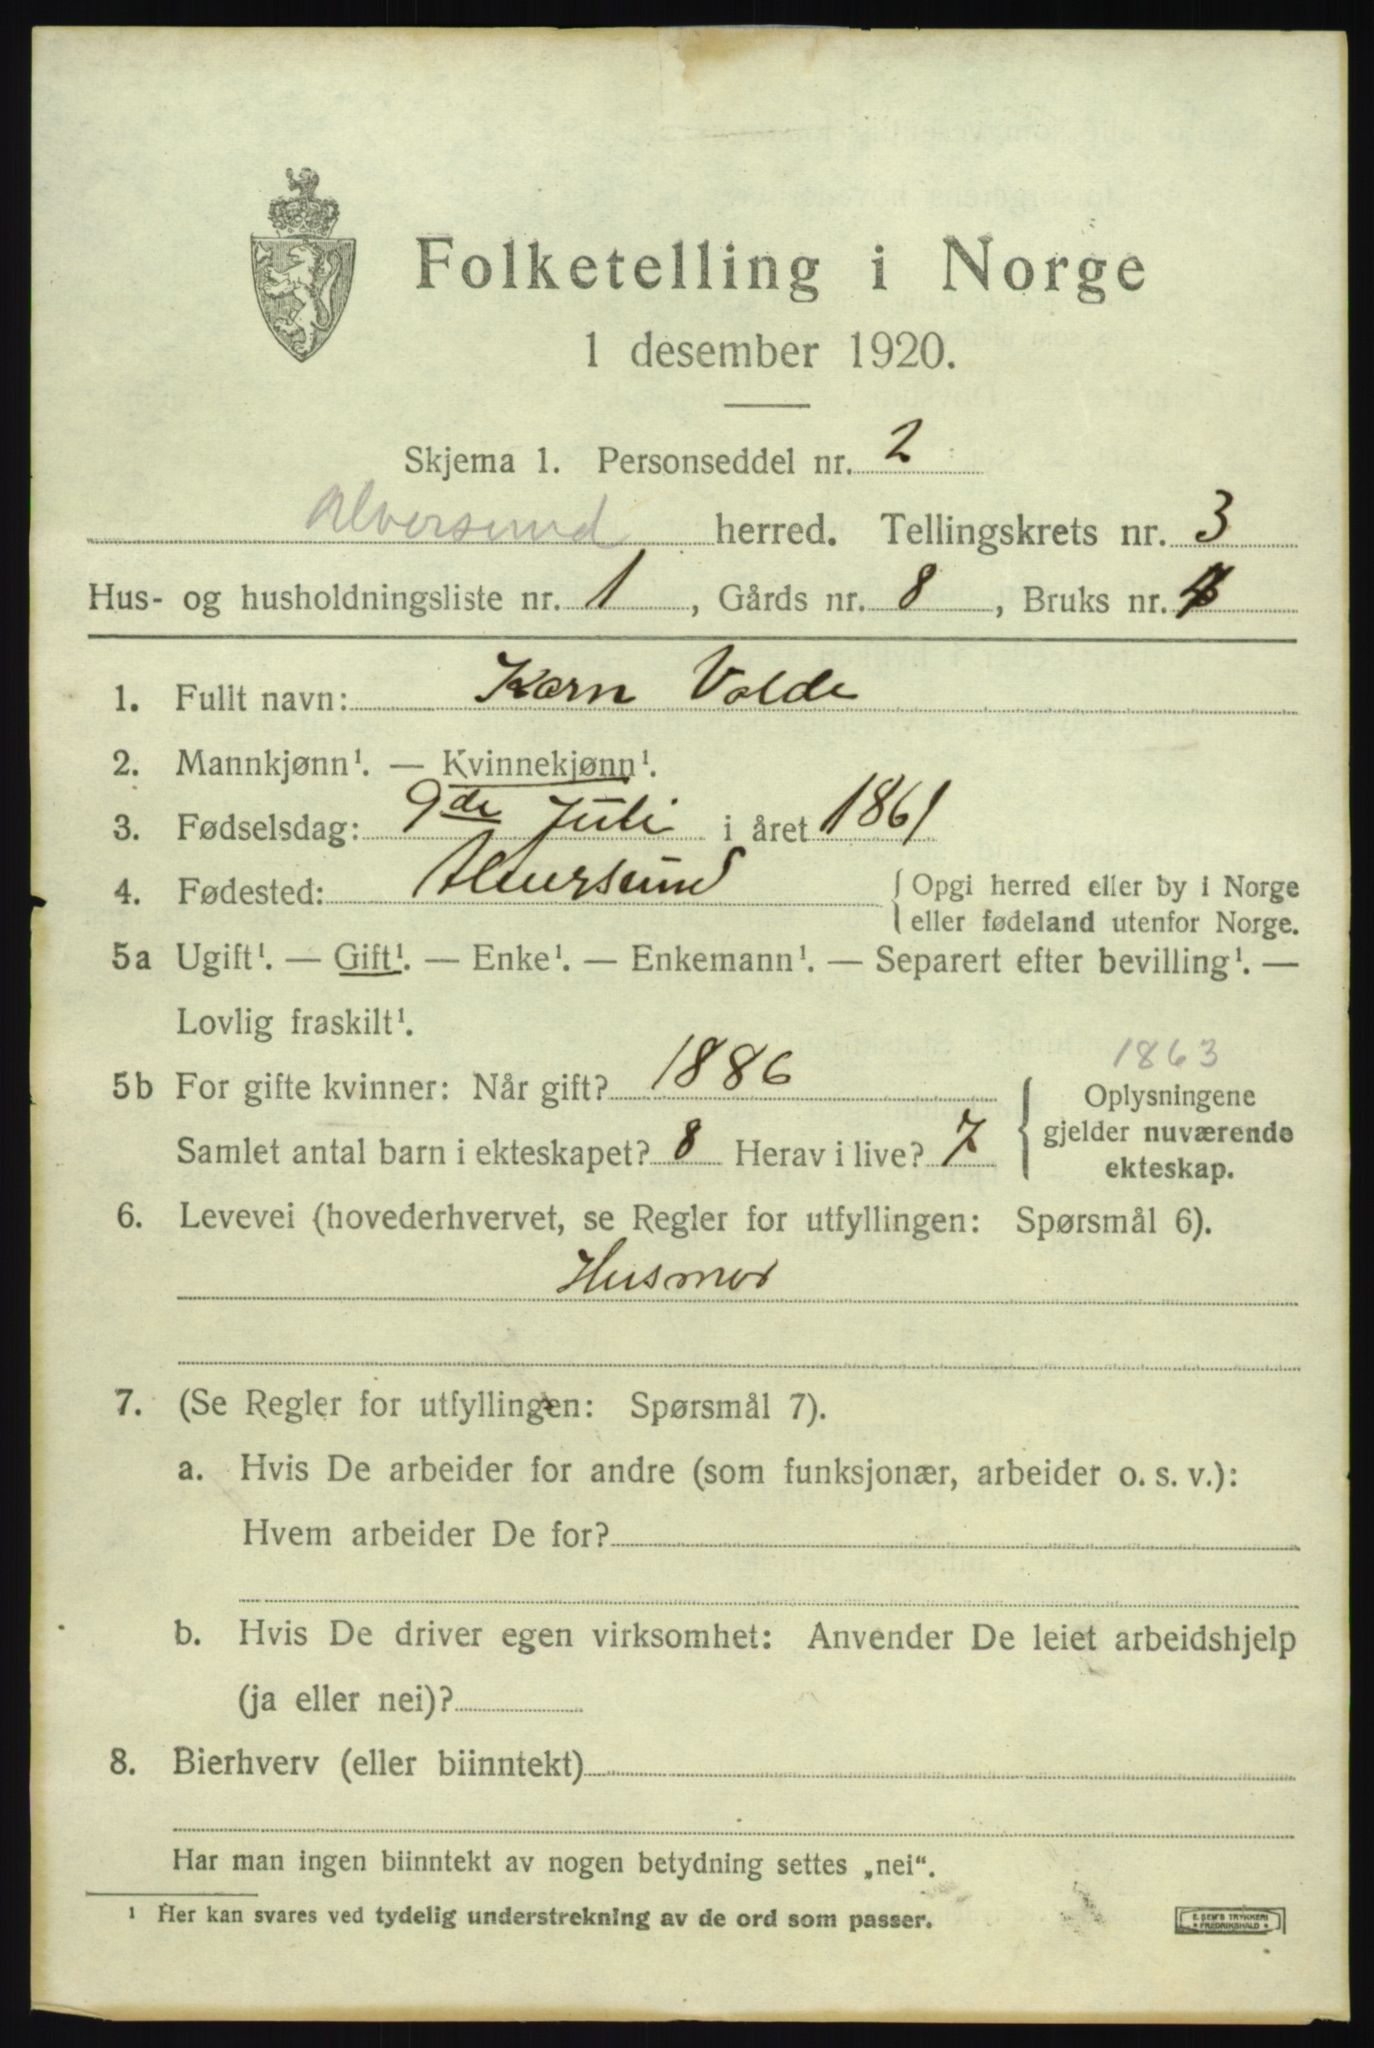 Folketelling i Norge
1 desember 1920.
Skjema 1. Personseddel nr. 2
Alversund herred. Tellingskrets nr. 3
Hus- og husholdningsliste nr. 1, Gårds nr. 8, Bruks nr.
1. Fullt navn: Karn Valde
2. Mannkjønn¹. — Kvinnekjønn¹.
3. Fødselsdag: 9de Juli i året 1861
4. Fødested: Alversund { Opgi herred eller by i Norge
eller fødeland utenfor Norge.
5a Ugift¹. — Gift¹. — Enke¹. — Enkemann¹. — Separert efter bevilling¹. —
Lovlig fraskilt¹.
1863
5b For gifte kvinner: Når gift? 1886 { Oplysningene
gjelder nuværende
Samlet antal barn i ekteskapet? 8 Herav i live? 7
ekteskap.
6. Levevei (hovederhvervet, se Regler for utfyllingen: Spørsmål 6).
Husmor
7. (Se Regler for utfyllingen: Spørsmål 7).
a. Hvis De arbeider for andre (som funksjonær, arbeider o. s. v.):
Hvem arbeider De for?
b. Hvis De driver egen virksomhet: Anvender De leiet arbeidshjelp
(ja eller nei)?
8. Bierhverv (eller biinntekt)
Har man ingen biinntekt av nogen betydning settes „nei“.
¹ Her kan svares ved tydelig understrekning av de ord som passer.
E. SEM'S TRYKKERI
* FREDRIKSHALD *